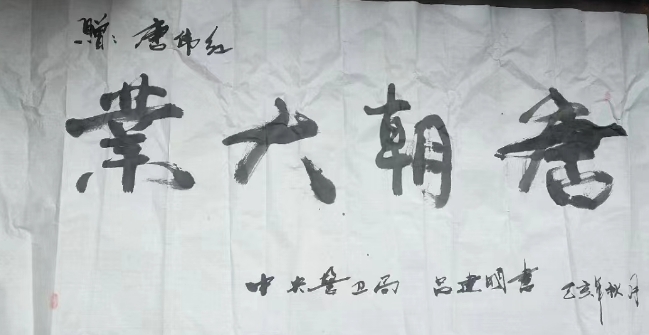 贈：唐伟红
唐朝大業
中央警卫局 吕建明書 乙亥年秋月